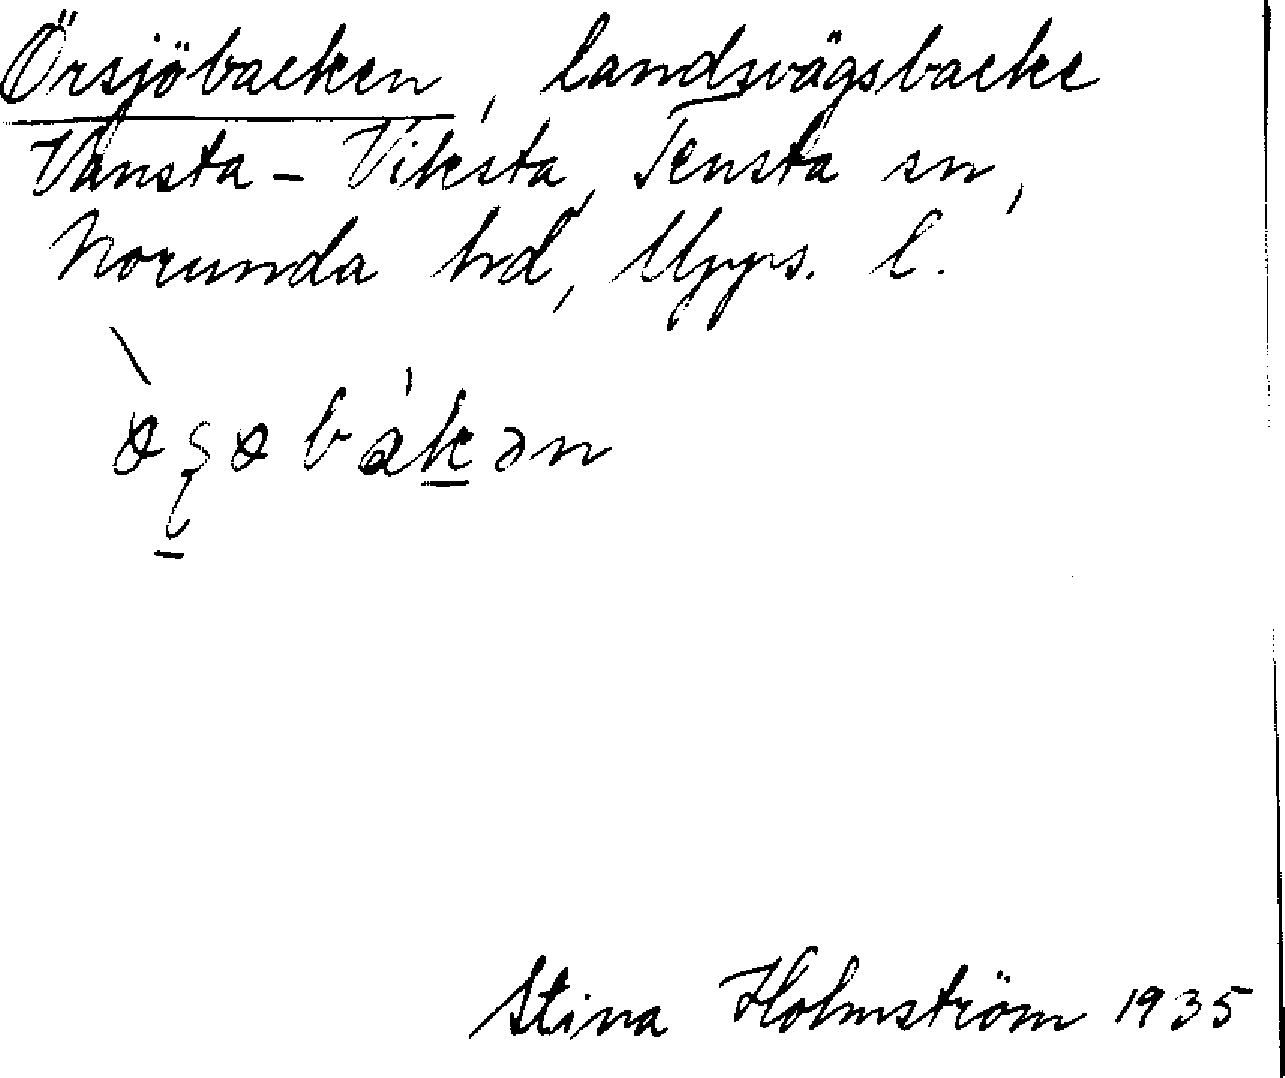 Örsjöbacken, landsvägsbacke
Vansta - Viksta, Tensta sn,
Norunda hd, Upps. l.
bákən
Stina Holmström 1935